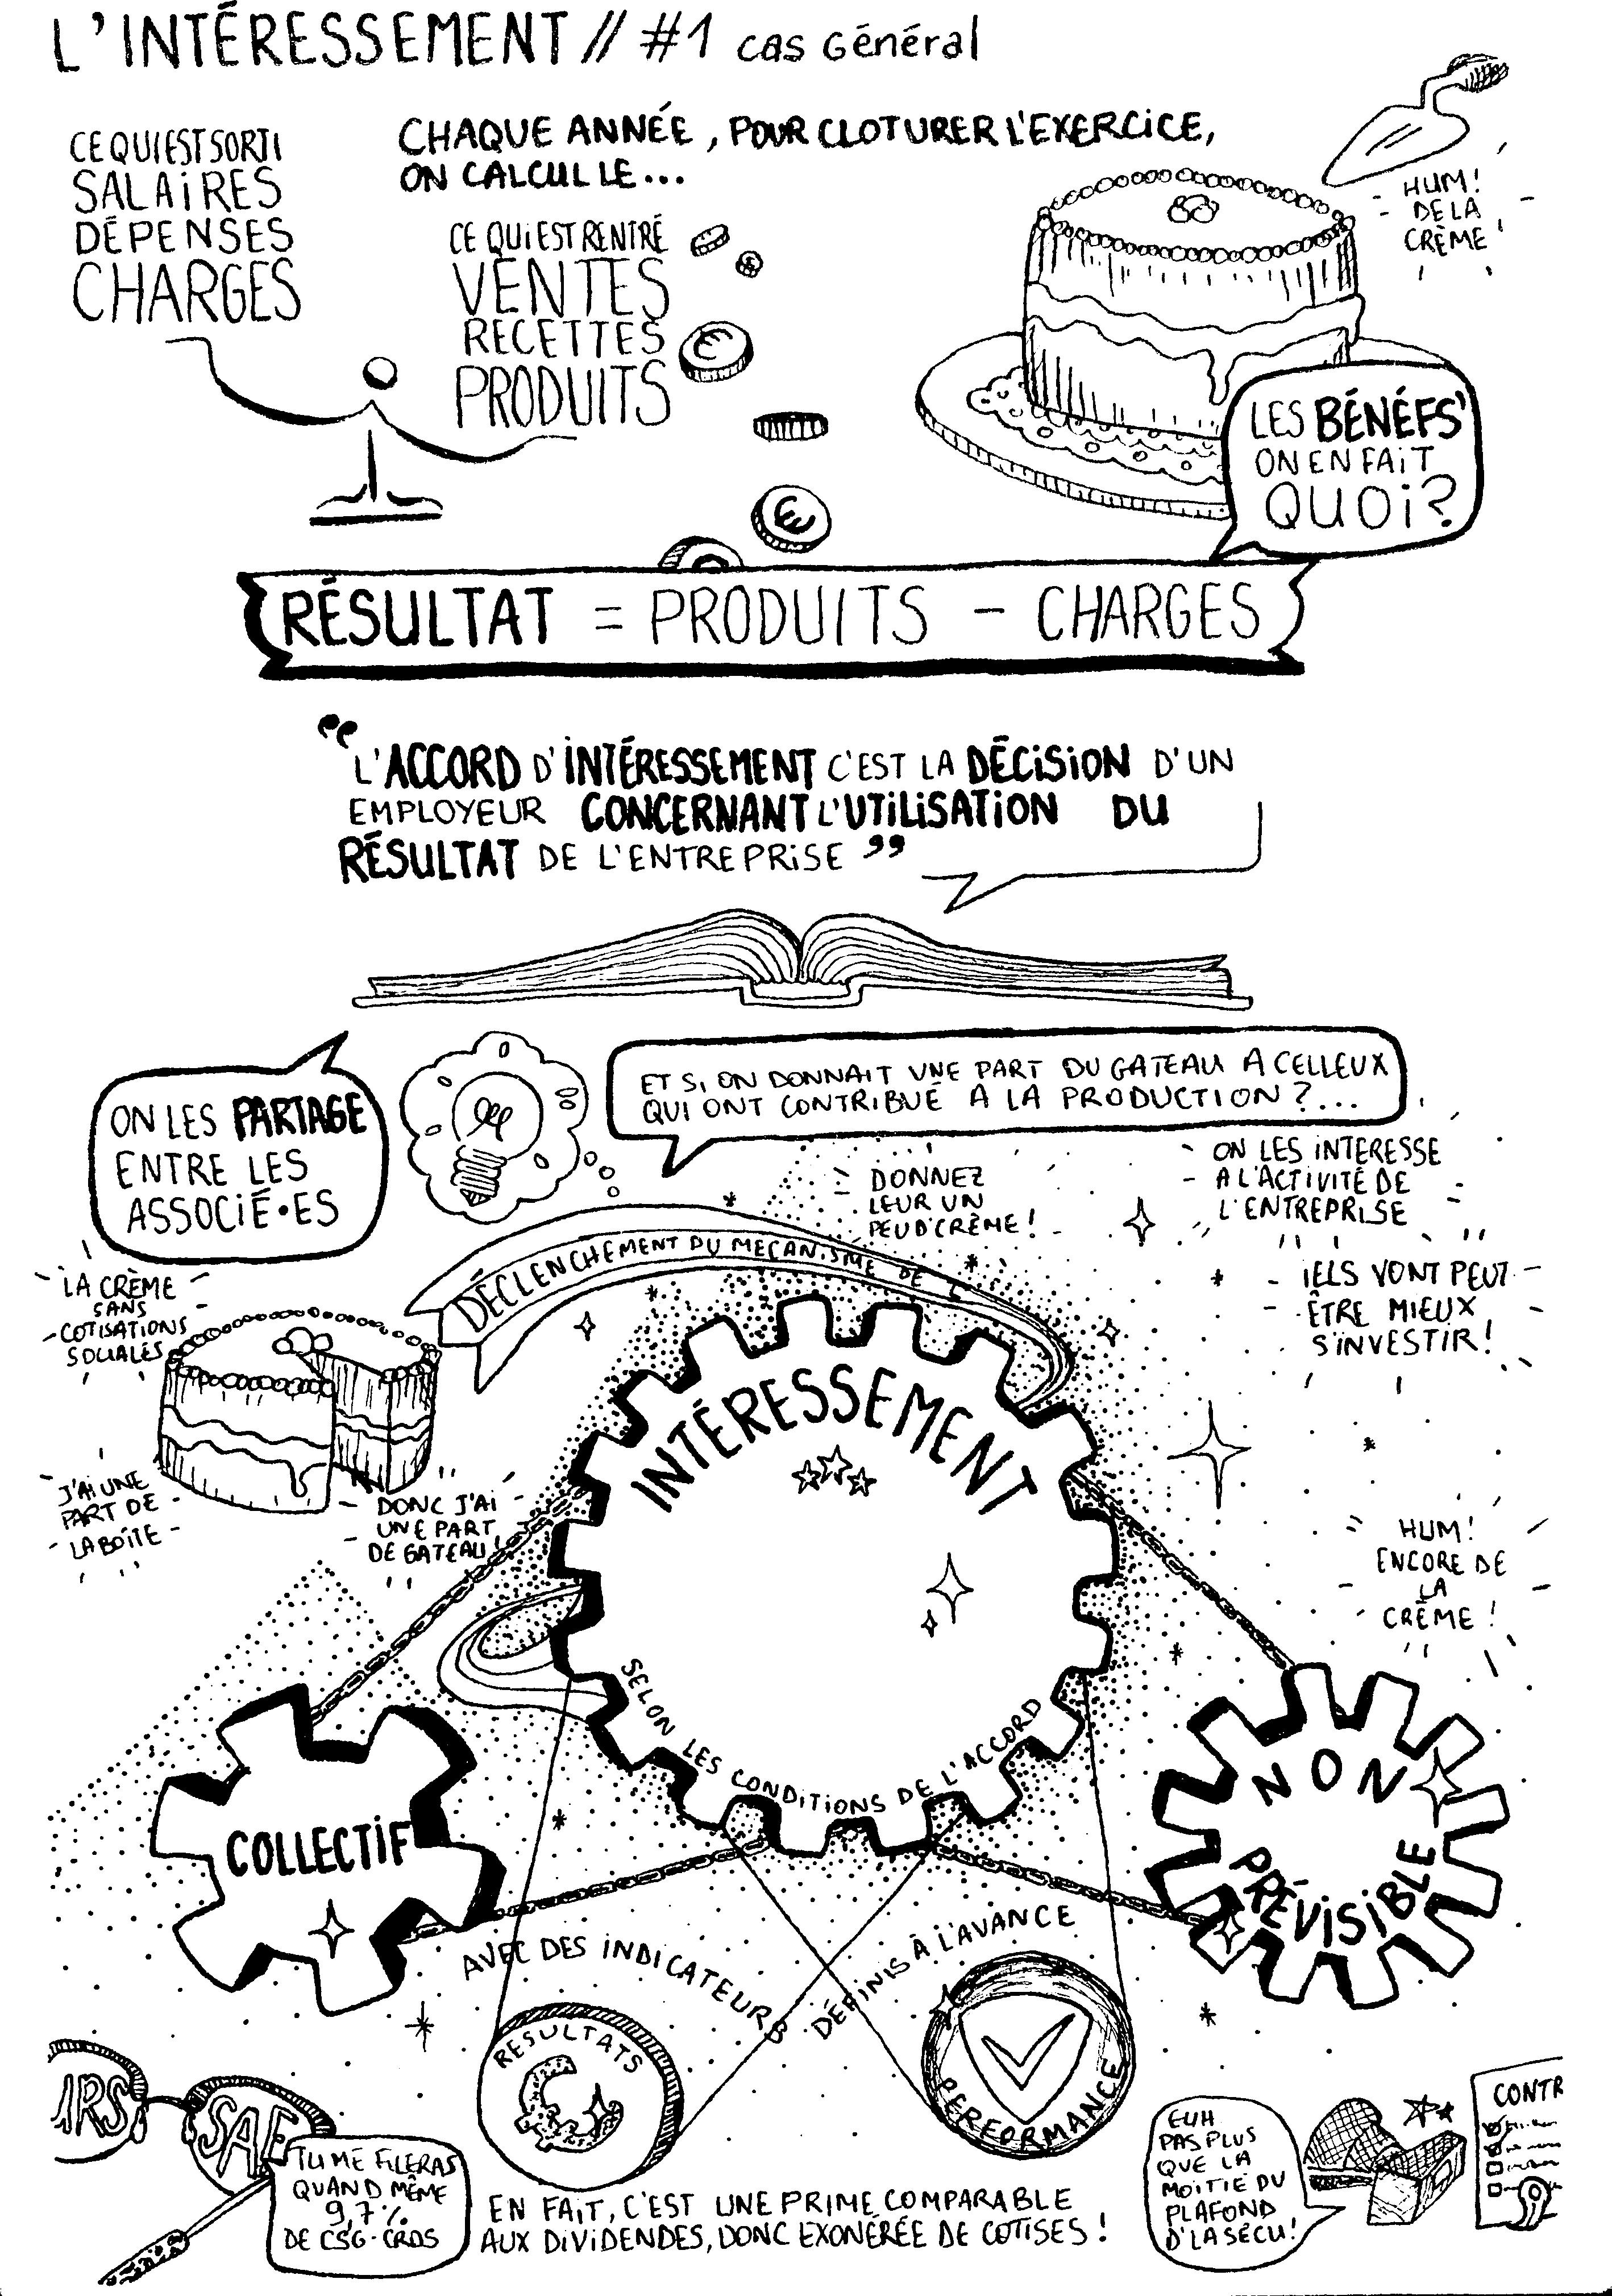 L'INTÉRESSEMENT // #1 cas Général
CE QUI EST SORTI
SALAIRES
DÉPENSES
CHARGES
CHAQUE ANNÉE, POUR CLOTURER L'EXERCICE,
ON CALCUL LE...
CE QUI EST RENTRÉ
VENTES
RECETTES
PRODUITS
HUM!
DE LA
CRÈME!
LES BÉNÉFS'
ON EN FAIT
QUOI?
RÉSULTAT = PRODUITS - CHARGES
“L'ACCORD D'INTÉRESSEMENT C'EST LA DÉCISION D'UN
EMPLOYEUR CONCERNANT L'UTILISATION DU
RÉSULTAT DE L'ENTREPRISE”
ON LES PARTAGE
ENTRE LES
ASSOCIÉ•ES
ET SI ON DONNAIT UNE PART DU GATEAU A CELLEUX
QUI ONT CONTRIBUÉ A LA PRODUCTION?...
DONNEZ
LEUR UN
PEU D'CRÈME!
ON LES INTERESSE
A L'ACTIVITÉ DE
L'ENTREPRISE
IELS VONT PEUT
ÊTRE MIEUX
S'INVESTIR!
LA CRÈME
SANS
COTISATIONS
SOCIALES
DÉCLENCHEMENT DU MECANISME DE L'
INTÉRESSEMENT
J'AI UNE
PART DE
LA BOÎTE
DONC J'AI
UNE PART
DE GATEAU!
HUM!
ENCORE DE
LA
CRÈME!
SELON LES CONDITIONS DE L'ACCORD
COLLECTIF
NON
PRÉVISIBLE
AVEC DES INDICATEURS DÉFINIS À L'AVANCE
RESULTATS
€
PERFORMANCE
IRS
SAE
TU ME FILERAS
QUAND MÊME
9,7%
DE CSG-CRDS
EN FAIT, C'EST UNE PRIME COMPARABLE
AUX DIVIDENDES, DONC EXONÉRÉE DE COTISES!
EUH
PAS PLUS
QUE LA
MOITIÉ DU
PLAFOND
D'LA SÉCU!
CONTR